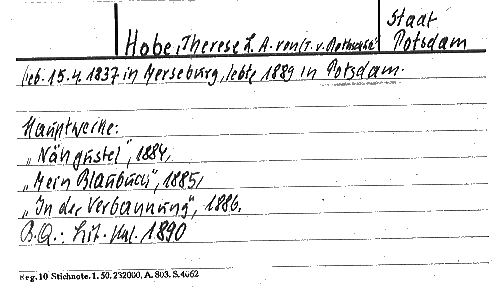 Hobe, Therese L. A. von (T. v. Rothschütz)
Stadt
Potsdam
Geb. 15.4.1837 in Merseburg, lebte 1889 in Potsdam.
Hauptwerke:
„Nähgustel", 1884,
„Mein Blaubuch", 1885,
„In der Verbannung", 1886.
B.Q.: Lit. Kal. 1890
Reg. 10 Stichnote. 1. 50. 232000, A. 803. S. 4062